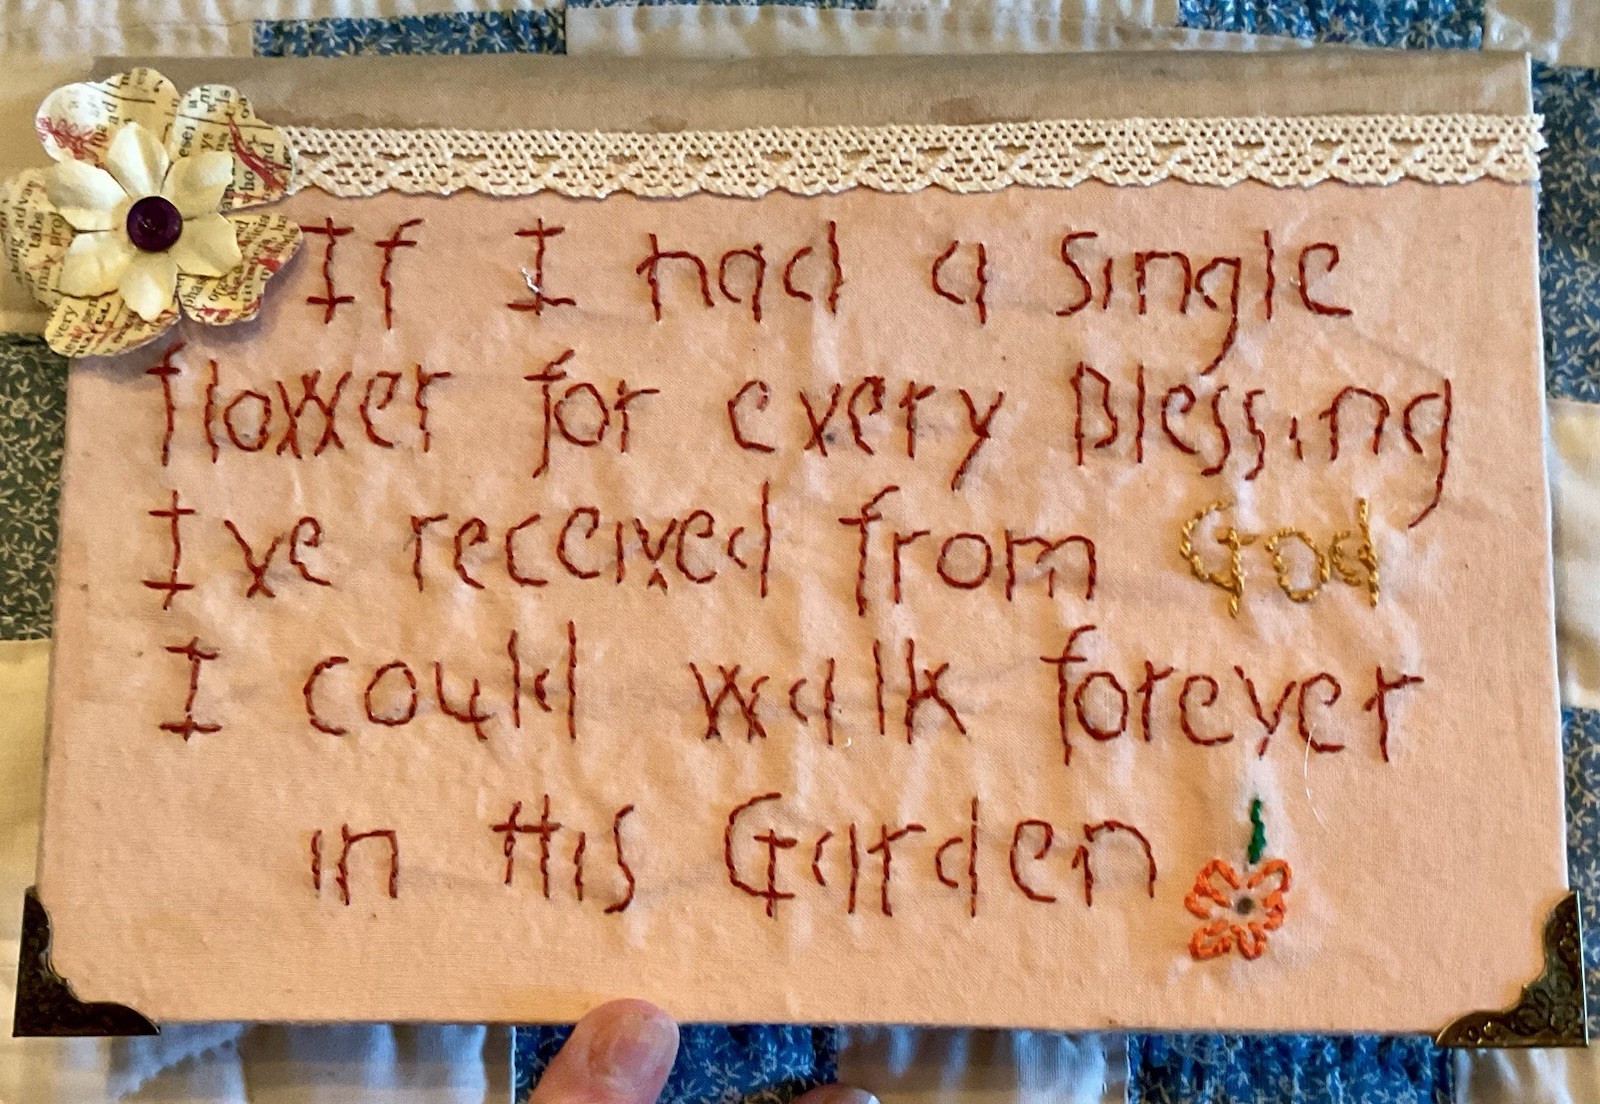 If I had a Single
flower for every Blessing
I've received from God
I could walk forever
in His Garden